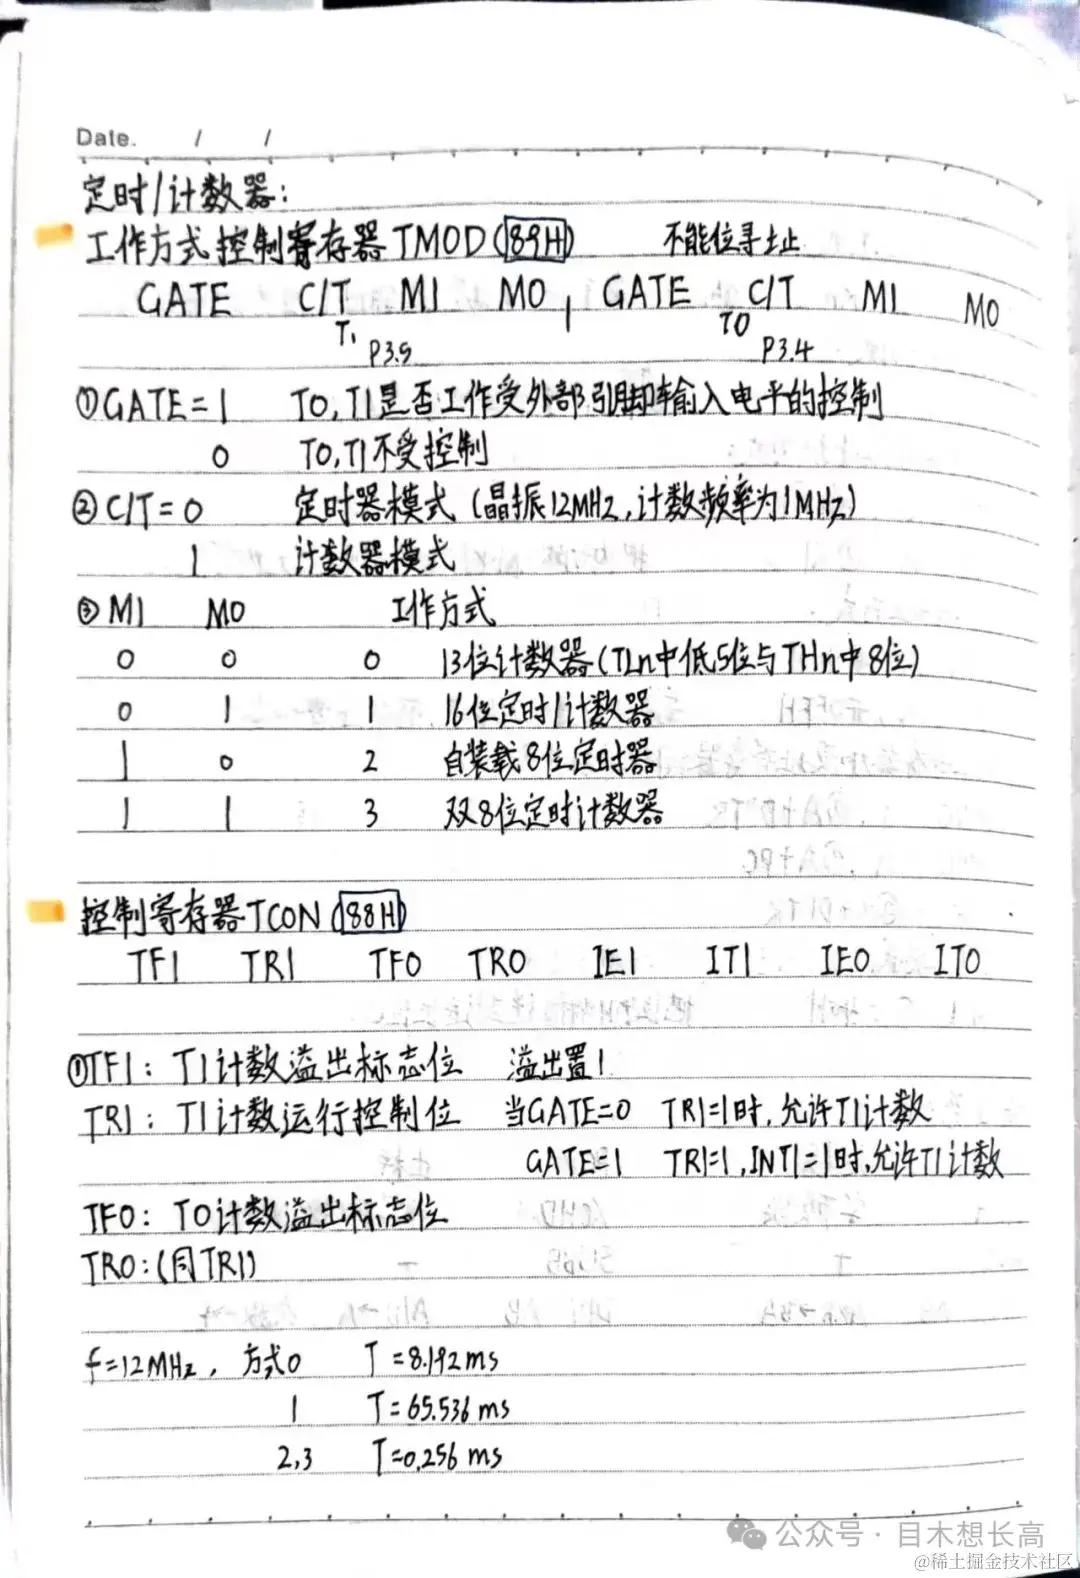 Date.    /    /
定时/计数器:
工作方式控制寄存器TMOD(89H)    不能位寻址
GATE  C/T  M1  M0 | GATE  C/T  M1  M0
T1 P3.5    T0 P3.4
①GATE=1  T0,T1是否工作受外部引脚输入电平的控制
0  T0,T1不受控制
②C/T=0  定时器模式(晶振12MHz,计数频率为1MHz)
1  计数器模式
③M1  M0  工作方式
0  0  0  13位计数器(TLn中低5位与THn中8位)
0  1  1  16位定时/计数器
1  0  2  自装载8位定时器
1  1  3  双8位定时计数器
控制寄存器TCON(88H)
TF1  TR1  TF0  TR0  IE1  IT1  IE0  IT0
①TF1: T1计数溢出标志位  溢出置1
TR1: T1计数运行控制位  当GATE=0  TR1=1时,允许T1计数
GATE=1  TR1=1,INT1=1时,允许T1计数
TF0: T0计数溢出标志位
TR0:(同TR1)
f=12MHz, 方式0  T=8.192ms
1  T=65.536ms
2,3  T=0.256ms
公众号·目木想长高
@稀土掘金技术社区